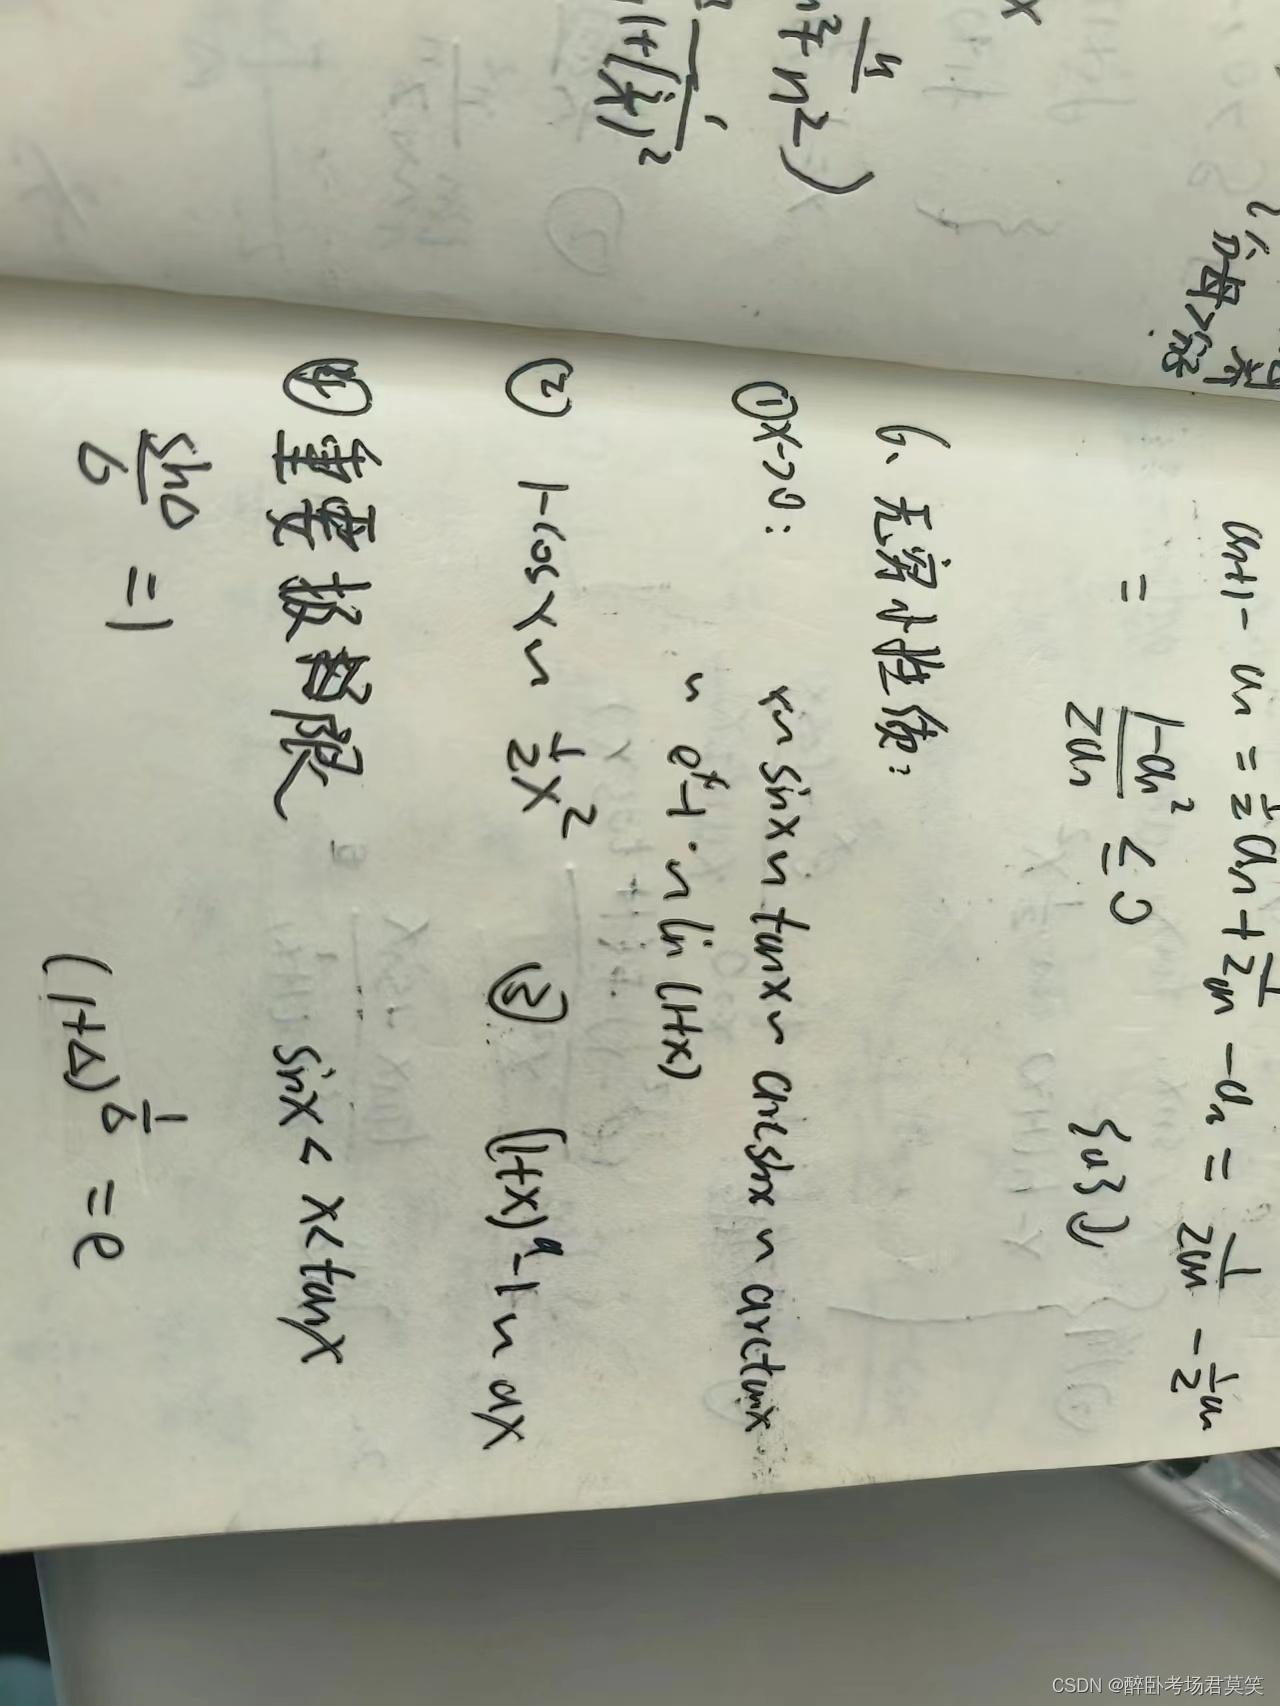 n
n²+n²)
1
1+(i/n)²
x
分母>分子
aₙ₊₁ - aₙ = 1/2 aₙ + 1/2aₙ - aₙ = 1/2aₙ - 1/2 aₙ
= 1-aₙ²/2aₙ ≤ 0 {a}↓
6、无穷小性质:
①x→0: x~sinx~tanx~arcsinx~arctanx
~ eˣ-1 ~ ln(1+x)
② 1-cosx ~ 1/2 x² ③ (1+x)ᵃ-1~ax
④ 重要极限 sinx < x < tanx
sinΔ/Δ = 1 (1+Δ)^(1/Δ) = e
CSDN @醉卧考场君莫笑